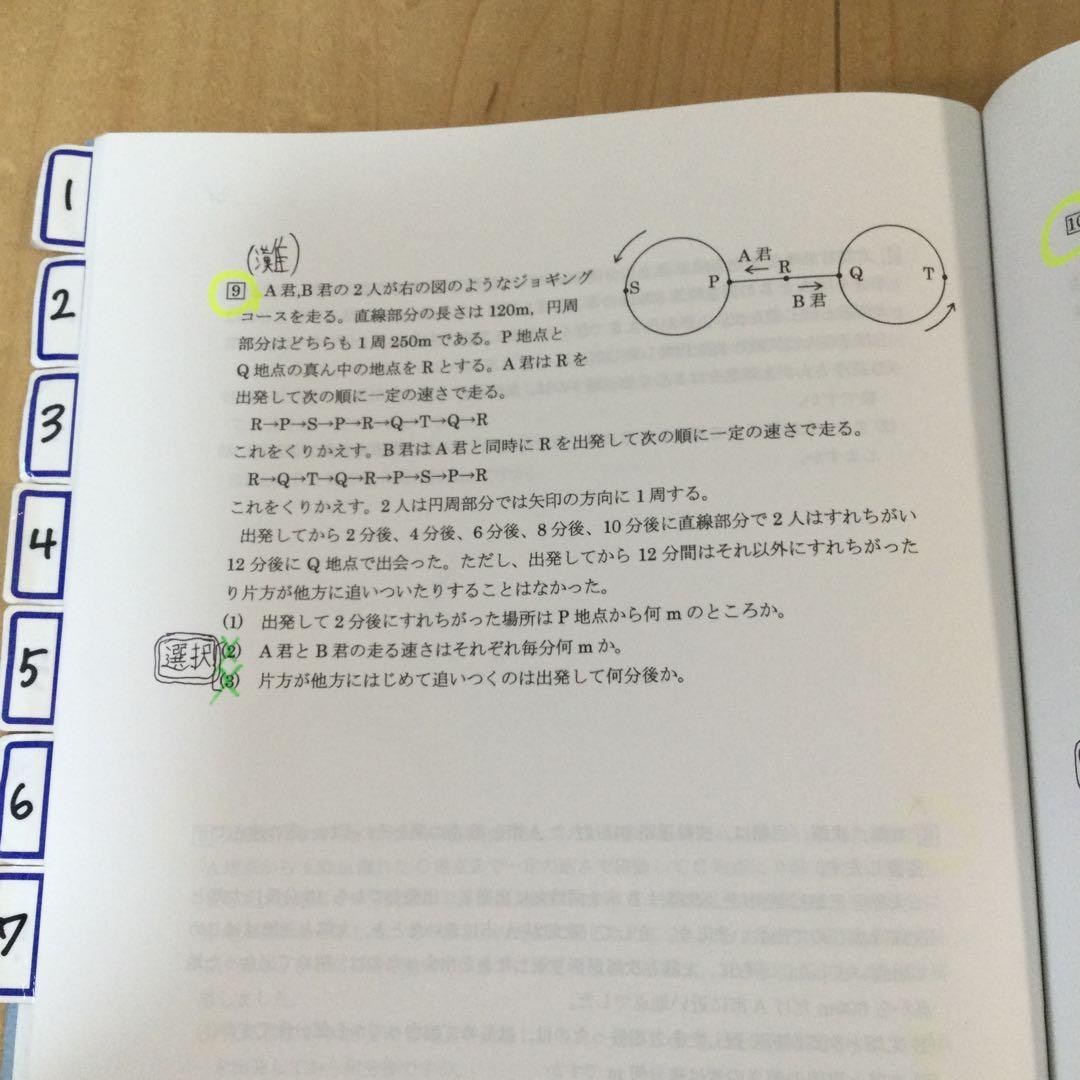 1
2
3
4
5
6
7
(難)
9 A君,B君の2人が右の図のようなジョギング
コースを走る。直線部分の長さは120m, 円周
部分はどちらも1周250mである。P地点と
Q地点の真ん中の地点をRとする。A君はRを
出発して次の順に一定の速さで走る。
R→P→S→P→R→Q→T→Q→R
これをくりかえす。B君はA君と同時にRを出発して次の順に一定の速さで走る。
R→Q→T→Q→R→P→S→P→R
これをくりかえす。2人は円周部分では矢印の方向に1周する。
出発してから2分後、4分後、6分後、8分後、10分後に直線部分で2人はすれちがい
12分後にQ地点で出会った。ただし、出発してから12分間はそれ以外にすれちがった
り片方が他方に追いついたりすることはなかった。
(1) 出発して2分後にすれちがった場所はP地点から何mのところか。
選択
(2) A君とB君の走る速さはそれぞれ毎分何mか。
(3) 片方が他方にはじめて追いつくのは出発して何分後か。
A君
S P R Q T
B君
10